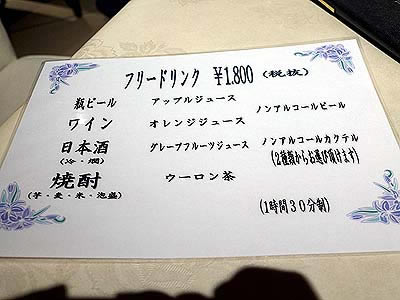 フリードリンク ¥1,800 (税抜)
瓶ビール アップルジュース ノンアルコールビール
ワイン オレンジジュース
日本酒 グレープフルーツジュース ノンアルコールカクテル
(冷・燗) (2種類からお選び頂けます)
焼酎 ウーロン茶
(芋・麦・米・泡盛) (1時間30分制)